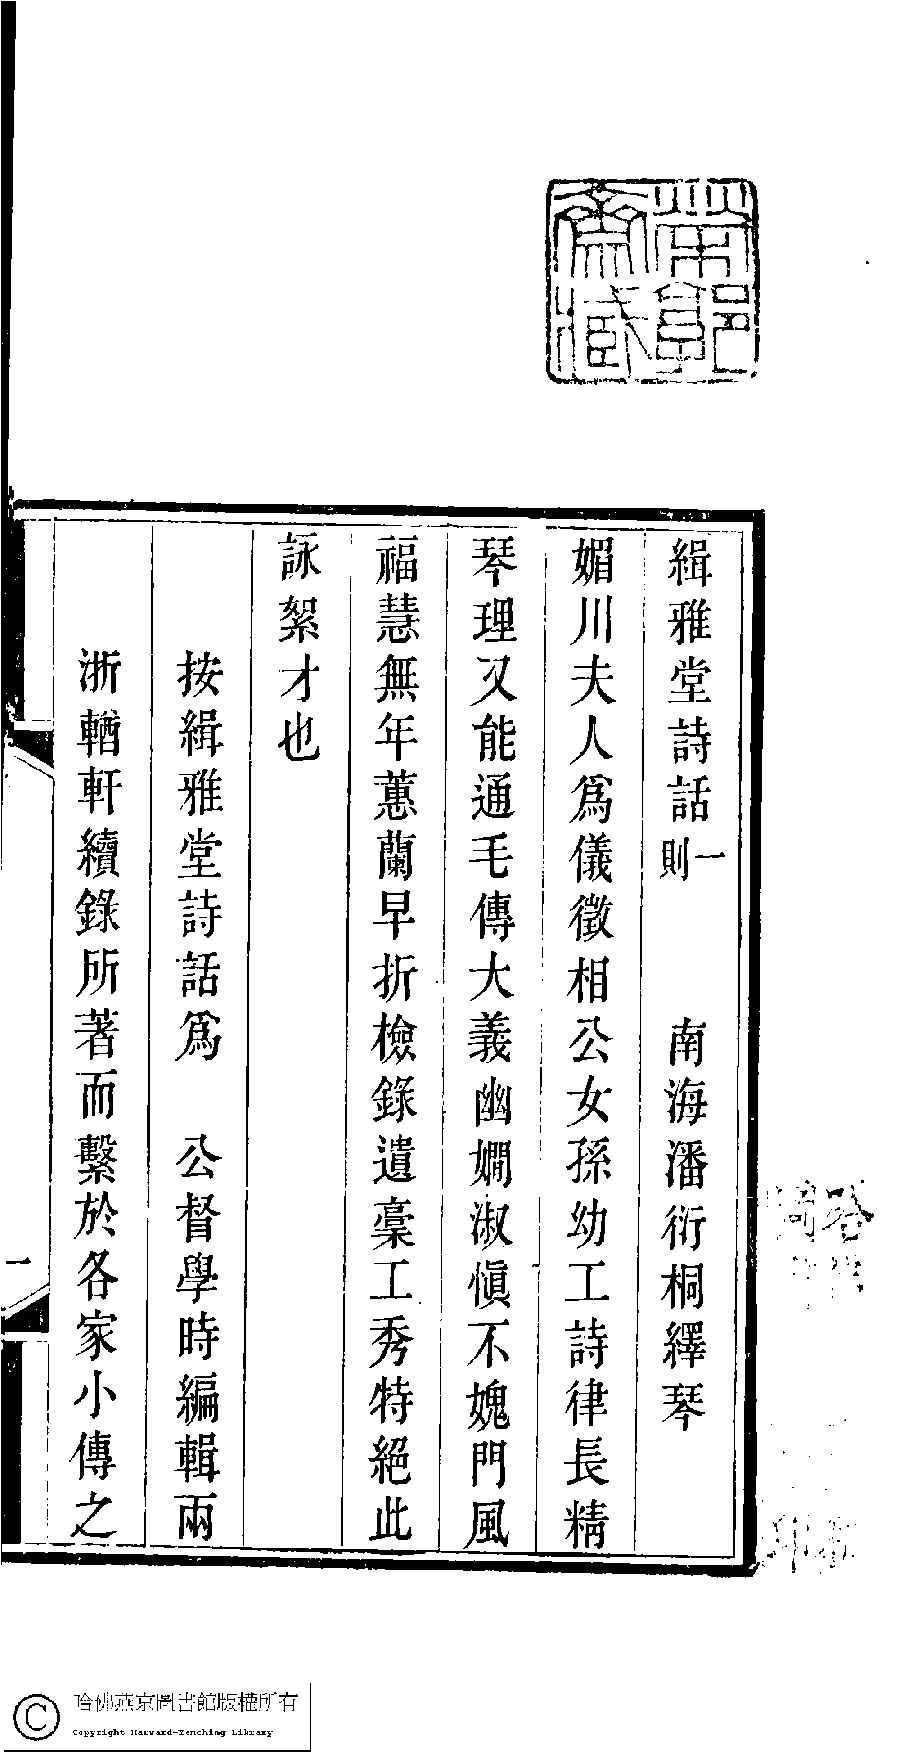 緝雅堂詩話一則　　南海潘衍桐繹琴
媚川夫人爲儀徵相公女孫幼工詩律長精
琴理又能通毛傳大義幽嫺淑愼不媿門風
福慧無年蕙蘭早折檢錄遺稾工秀特絕此
詠絮才也
按緝雅堂詩話爲　公督學時編輯兩
浙輶軒續錄所著而繫於各家小傳之
一
哈佛燕京圖書館版權所有
Copyright Harvard-Yenching Library